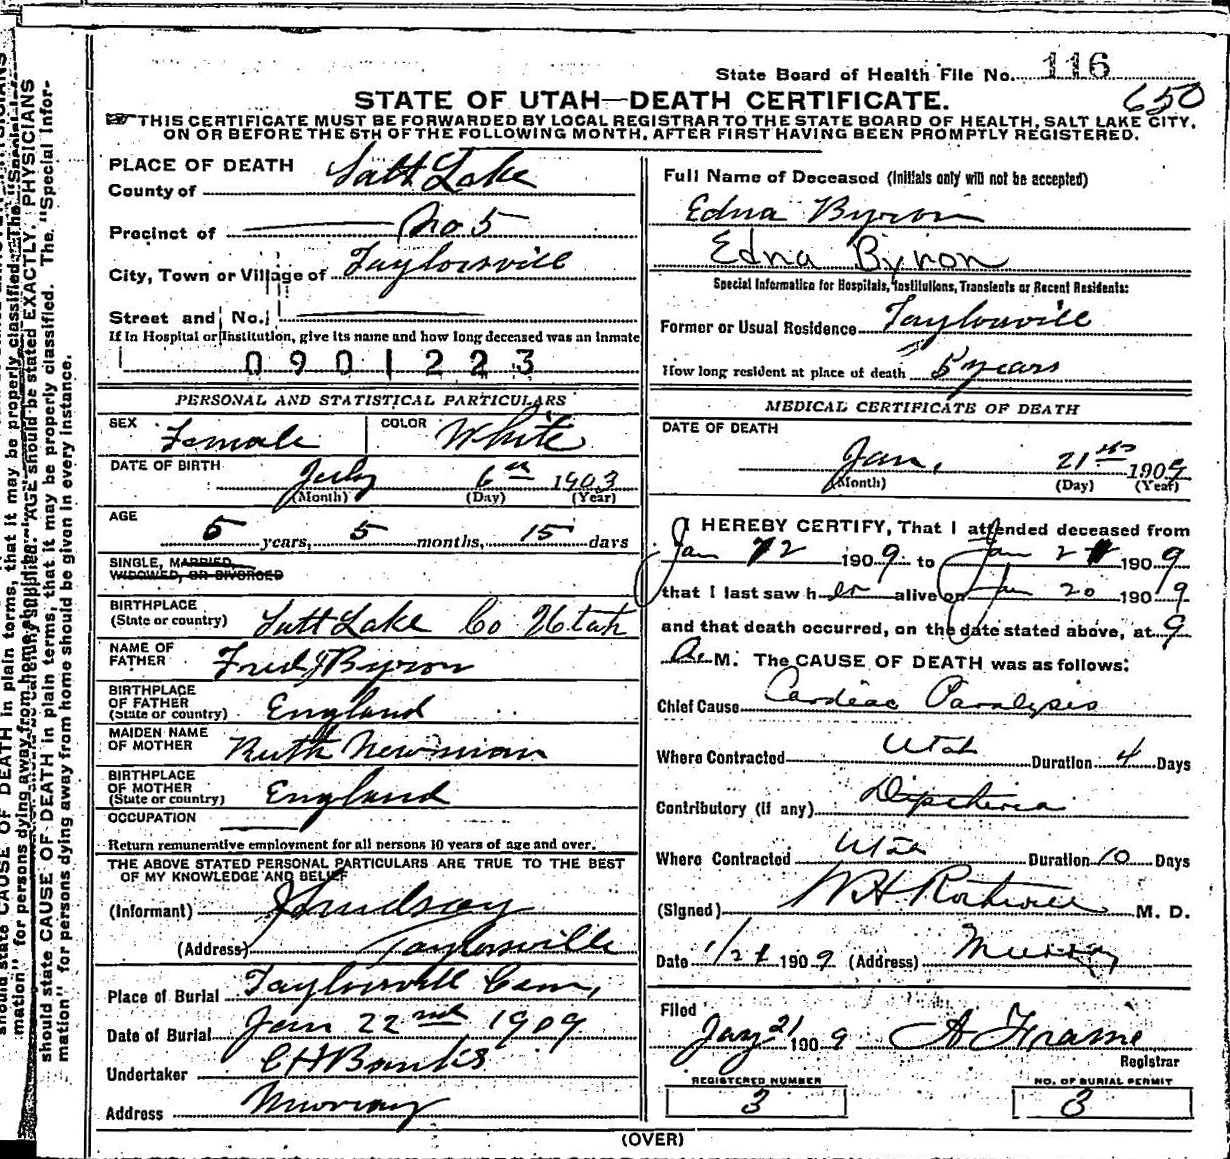 State Board of Health File No. 116
650
STATE OF UTAH—DEATH CERTIFICATE.
THIS CERTIFICATE MUST BE FORWARDED BY LOCAL REGISTRAR TO THE STATE BOARD OF HEALTH, SALT LAKE CITY,
ON OR BEFORE THE 5TH OF THE FOLLOWING MONTH, AFTER FIRST HAVING BEEN PROMPTLY REGISTERED.
PLACE OF DEATH
County of Salt Lake
Precinct of No 5
City, Town or Village of Taylorsvill
Street and No.
If in Hospital or Institution, give its name and how long deceased was an inmate
0901223
PERSONAL AND STATISTICAL PARTICULARS
SEX Female COLOR White
DATE OF BIRTH July 6th 1903
(Month) (Day) (Year)
AGE 5 years, 5 months, 15 days
SINGLE, MARRIED,
WIDOWED, OR DIVORCED
BIRTHPLACE
(State or country) Salt Lake Co Utah
NAME OF
FATHER Fred J Byron
BIRTHPLACE
OF FATHER
(State or country) England
MAIDEN NAME
OF MOTHER Ruth Newman
BIRTHPLACE
OF MOTHER
(State or country) England
OCCUPATION
Return remunerative employment for all persons 10 years of age and over.
THE ABOVE STATED PERSONAL PARTICULARS ARE TRUE TO THE BEST
OF MY KNOWLEDGE AND BELIEF
(Informant) J Lindsay
(Address) Taylorsville
Place of Burial Taylorsvill Cem,
Date of Burial Jan 22nd 1909
Undertaker C H Banks
Address Murray
Full Name of Deceased (Initials only will not be accepted)
Edna Byron
Edna Byron
Special Information for Hospitals, Institutions, Transients or Recent Residents:
Former or Usual Residence Taylorsvill
How long resident at place of death 5 years
MEDICAL CERTIFICATE OF DEATH
DATE OF DEATH
Jan, 21st 1909
(Month) (Day) (Year)
I HEREBY CERTIFY, That I attended deceased from
Jan 12 1909 to Jan 21 1909
that I last saw her alive on Jan 20 1909
and that death occurred, on the date stated above, at 9
A. M. The CAUSE OF DEATH was as follows:
Chief Cause Cardiac Paralysis
Where Contracted Utah Duration 4 Days
Contributory (if any) Diptheria
Where Contracted Utah Duration 10 Days
(Signed) W H Rothwell M. D.
Date 1/21 1909 (Address) Murray
Filed
Jany 21 1909 A Frame
Registrar
REGISTERED NUMBER
3
NO. OF BURIAL PERMIT
3
(OVER)
should state CAUSE OF DEATH in plain terms, that it may be properly classified. The "Special Infor-
mation" for persons dying away from home should be given in every instance.